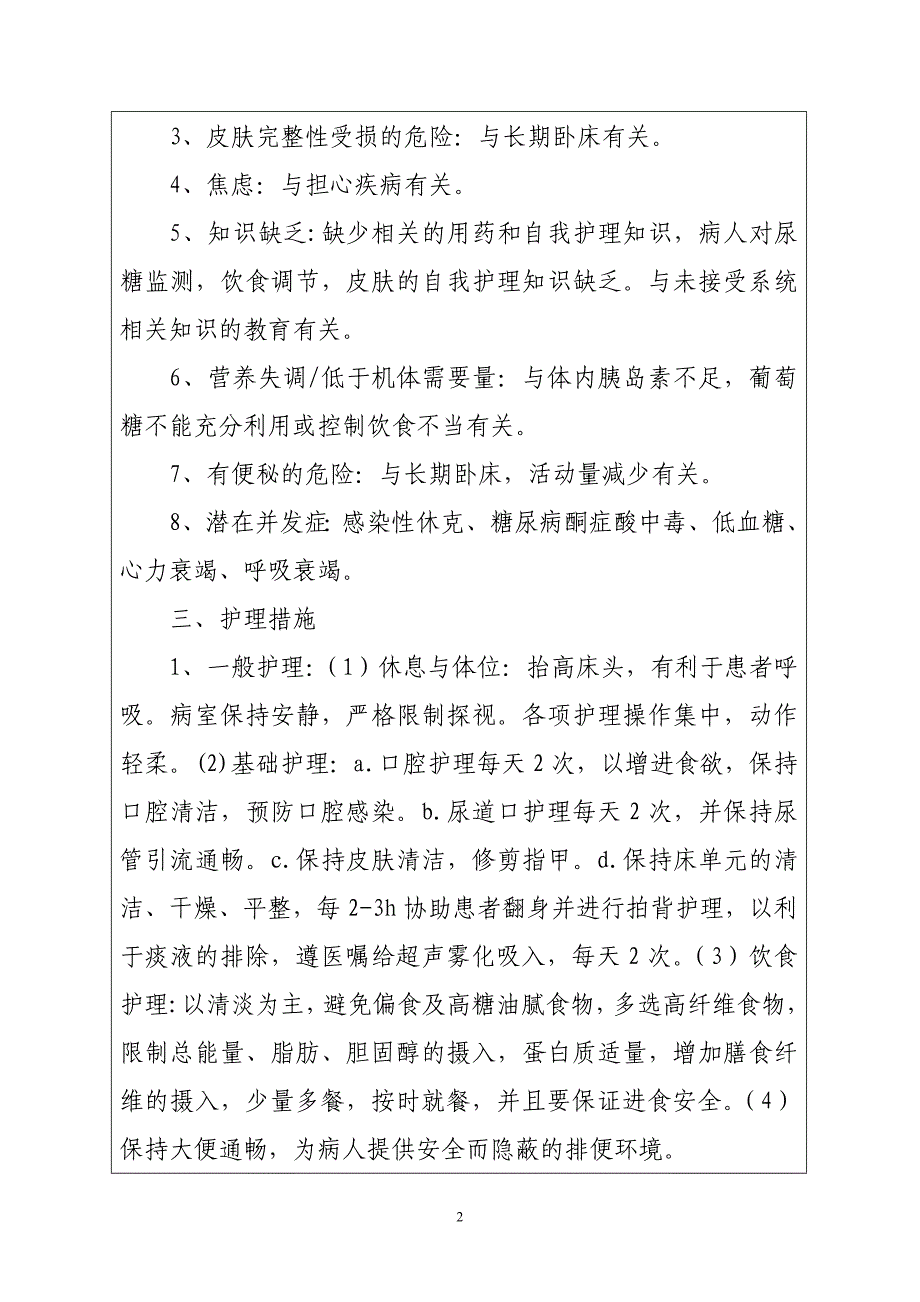 3、皮肤完整性受损的危险：与长期卧床有关。
4、焦虑：与担心疾病有关。
5、知识缺乏：缺少相关的用药和自我护理知识，病人对尿
糖监测，饮食调节，皮肤的自我护理知识缺乏。与未接受系统
相关知识的教育有关。
6、营养失调/低于机体需要量：与体内胰岛素不足，葡萄
糖不能充分利用或控制饮食不当有关。
7、有便秘的危险：与长期卧床，活动量减少有关。
8、潜在并发症：感染性休克、糖尿病酮症酸中毒、低血糖、
心力衰竭、呼吸衰竭。
三、护理措施
1、一般护理：（1）休息与体位：抬高床头，有利于患者呼
吸。病室保持安静，严格限制探视。各项护理操作集中，动作
轻柔。(2)基础护理：a.口腔护理每天2次，以增进食欲，保持
口腔清洁，预防口腔感染。b.尿道口护理每天2次，并保持尿
管引流通畅。c.保持皮肤清洁，修剪指甲。d.保持床单元的清
洁、干燥、平整，每2-3h协助患者翻身并进行拍背护理，以利
于痰液的排除，遵医嘱给超声雾化吸入，每天2次。（3）饮食
护理：以清淡为主，避免偏食及高糖油腻食物，多选高纤维食物，
限制总能量、脂肪、胆固醇的摄入，蛋白质适量，增加膳食纤
维的摄入，少量多餐，按时就餐，并且要保证进食安全。（4）
保持大便通畅，为病人提供安全而隐蔽的排便环境。
2